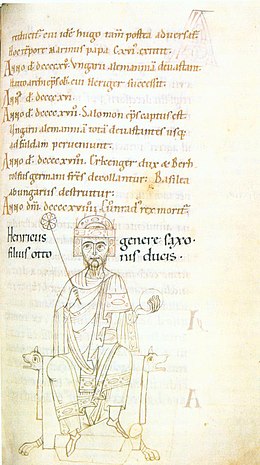 reduxer̄. eū idē hugo tam̄ postea advers' est
hoc tempore Marinus papa CXVI. extitit.
Anno d̄. dccccxv. Ungari alemanniā devastant.
hattoarchiep̄s ob. cui heriger successit.
Anno d̄. dccccxvi.
Anno d̄. dccccxvii. Salomon ep̄s captus est.
Ungari alemanniā totā devastantes usq;
ad fuldam pervenerunt.
Anno d̄. dccccxviii. Erkenger dux & Berh
tolfus germani fr̄es decollantur. Basilea
ab ungariis destruitur.
Anno dn̄i. dccccxviiii. Cunrad' rex moritur.
Henricus genere saxo-
filius otto nis ducis.